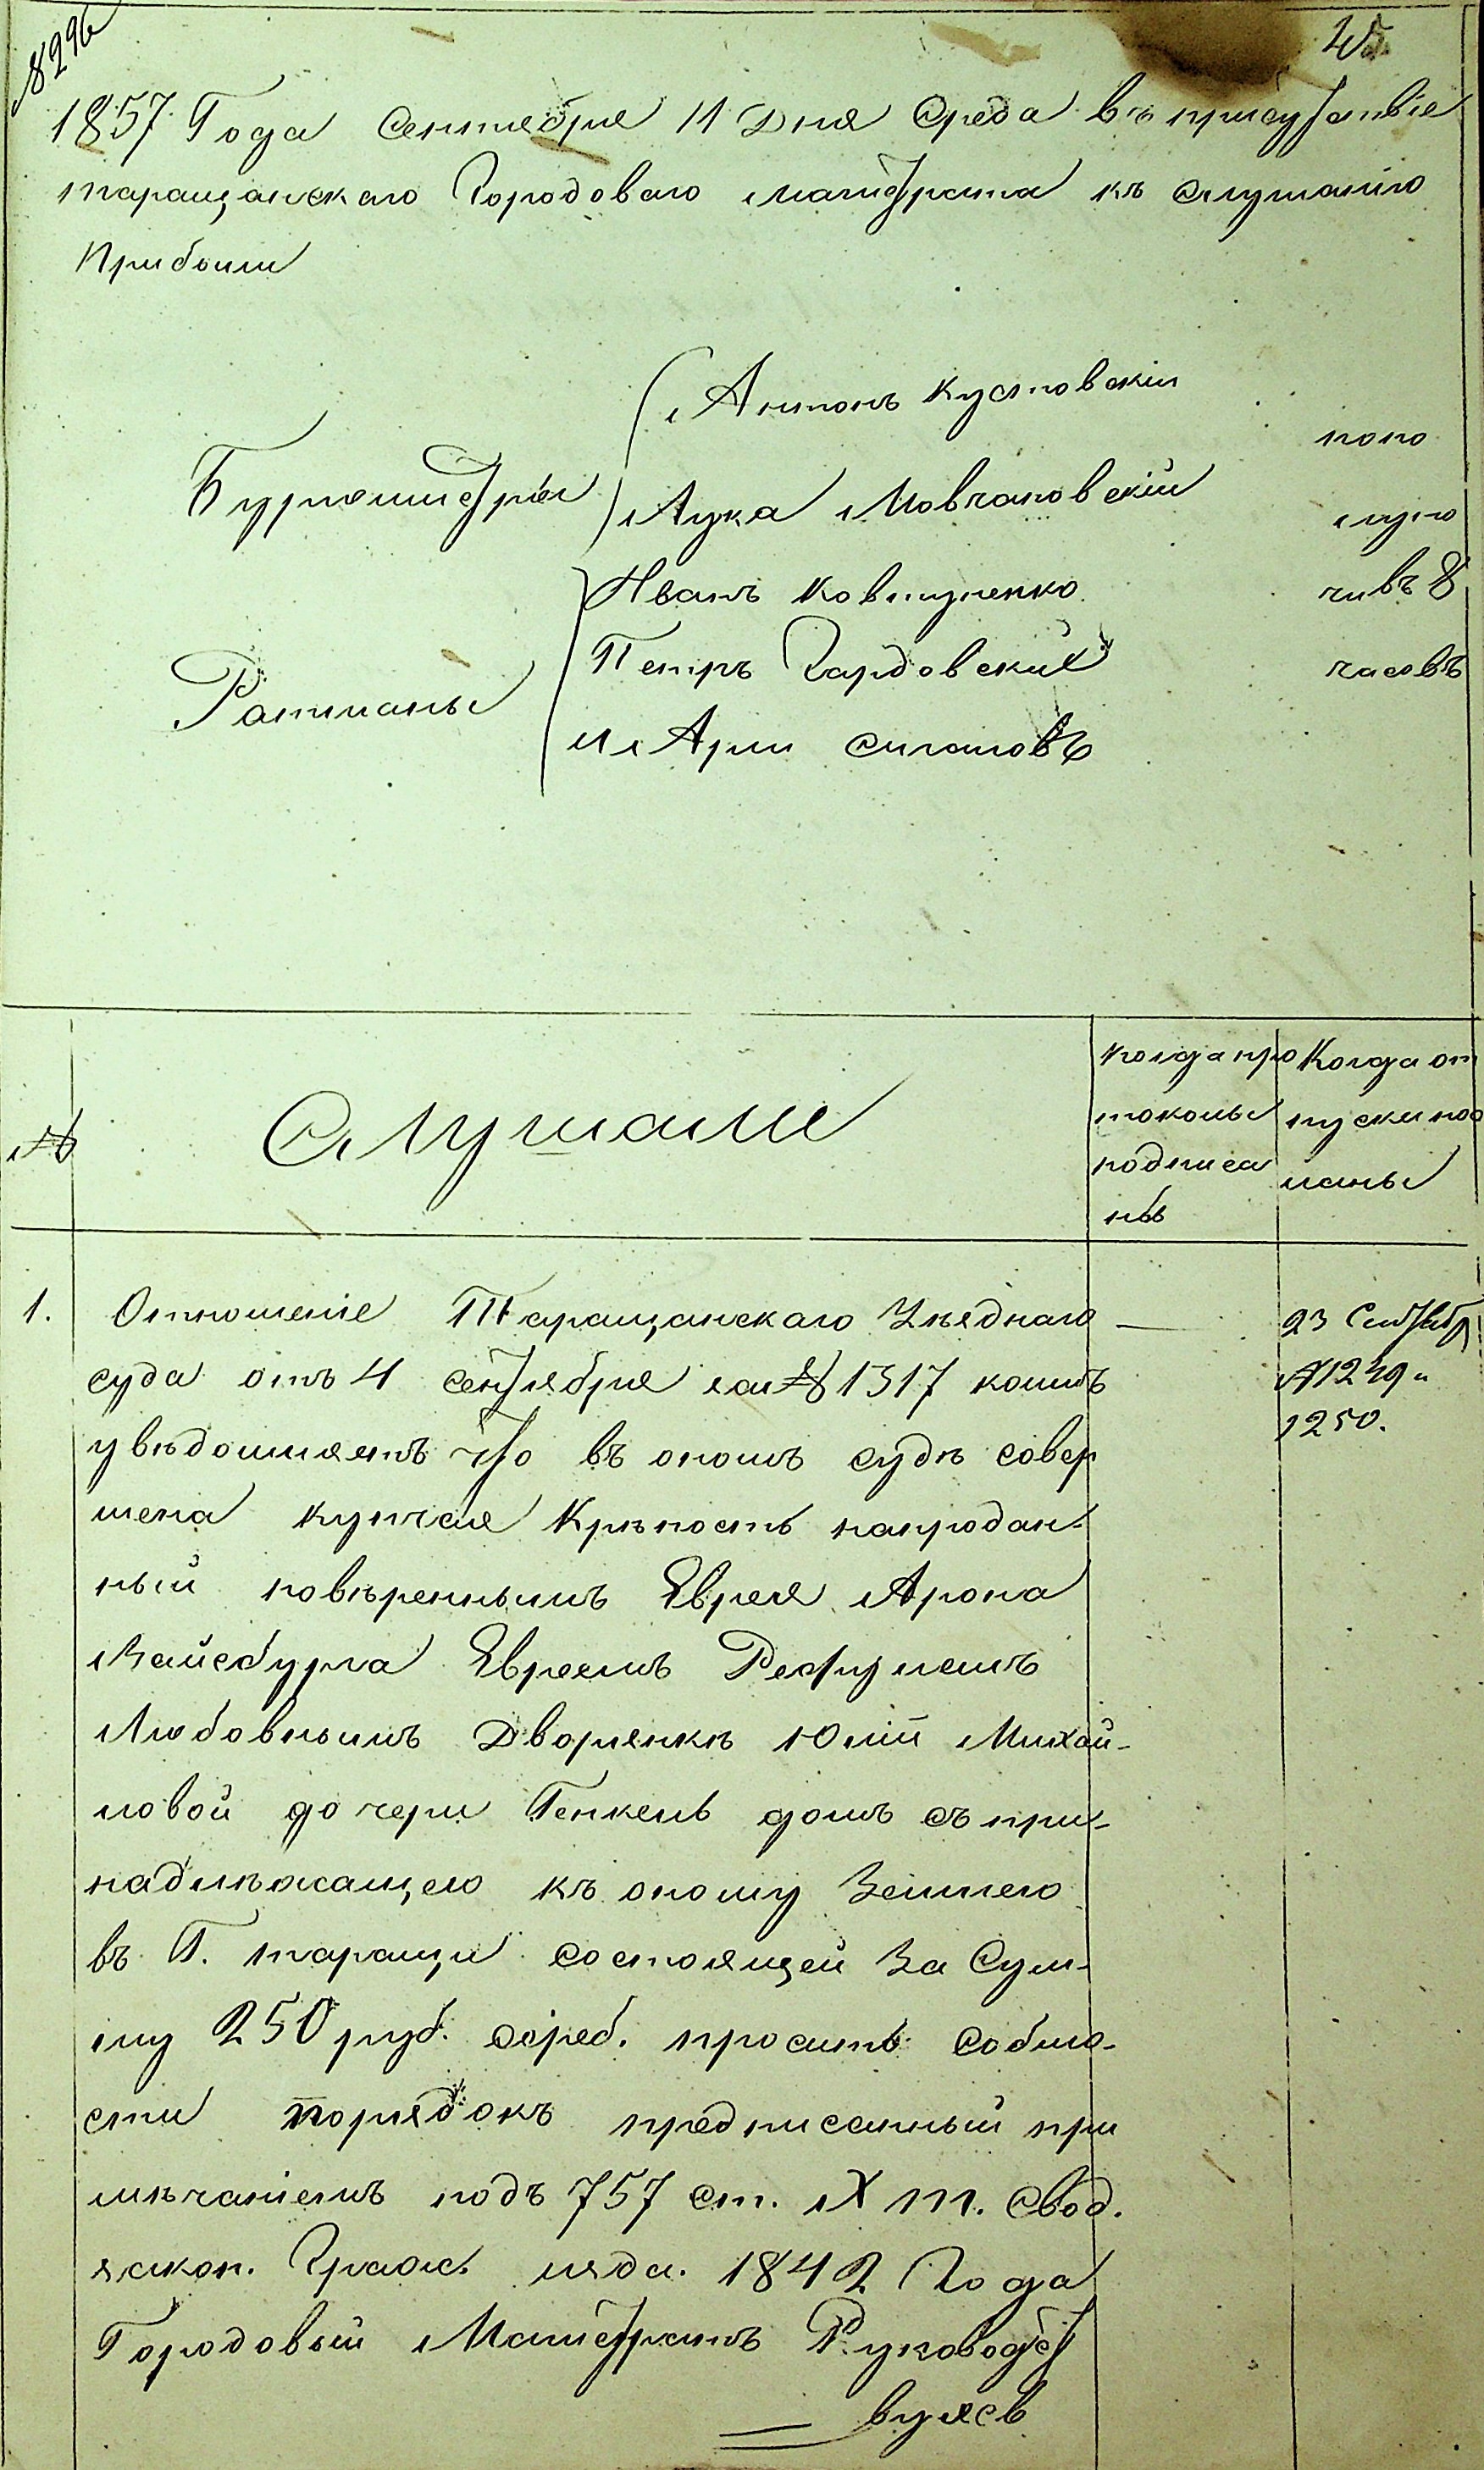 № 296
1857 Года Сентября 11 Дня Среда въ присутствіе
таращанскаго Городоваго магистрата къ слушанію
Прибыли
Бургомистры
Антонъ Кустовскій
Лука Мовчановскій
Ратманы
Иванъ Ковтуненко
Петръ Гардовскій
и Арш
попо
лудно
чивъ 8
часовъ
№
Слушали
Когда про
токолы
подписа
ны
Когда от
пуски пос
ланы
1. Отношеніе Таращанскаго Уѣзднаго
суда отъ 4 сентября за № 1317 коимъ
увѣдомляетъ что въ ономъ судѣ совер
шена купчая Крѣпость напродан-
ный повѣреннымъ Еврея Арона
Вайсбурга Евреемъ
Любовнымъ Дворянкѣ Юліи Михай-
ловой дочери Генкель домъ съ при-
надлѣжащею къ оному Землею
въ Г. таращи состоящей За Сум-
му 250 руб. сереб. проситъ соблю-
сти порядокъ предписанный при
мѣчаніемъ подъ 757 ст. X т. Свод.
закон. Гражд. изда. 1842 Года
Городовый Магистратъ Руководст
вуясь
23 Сентября
№ 1249 и
1250.